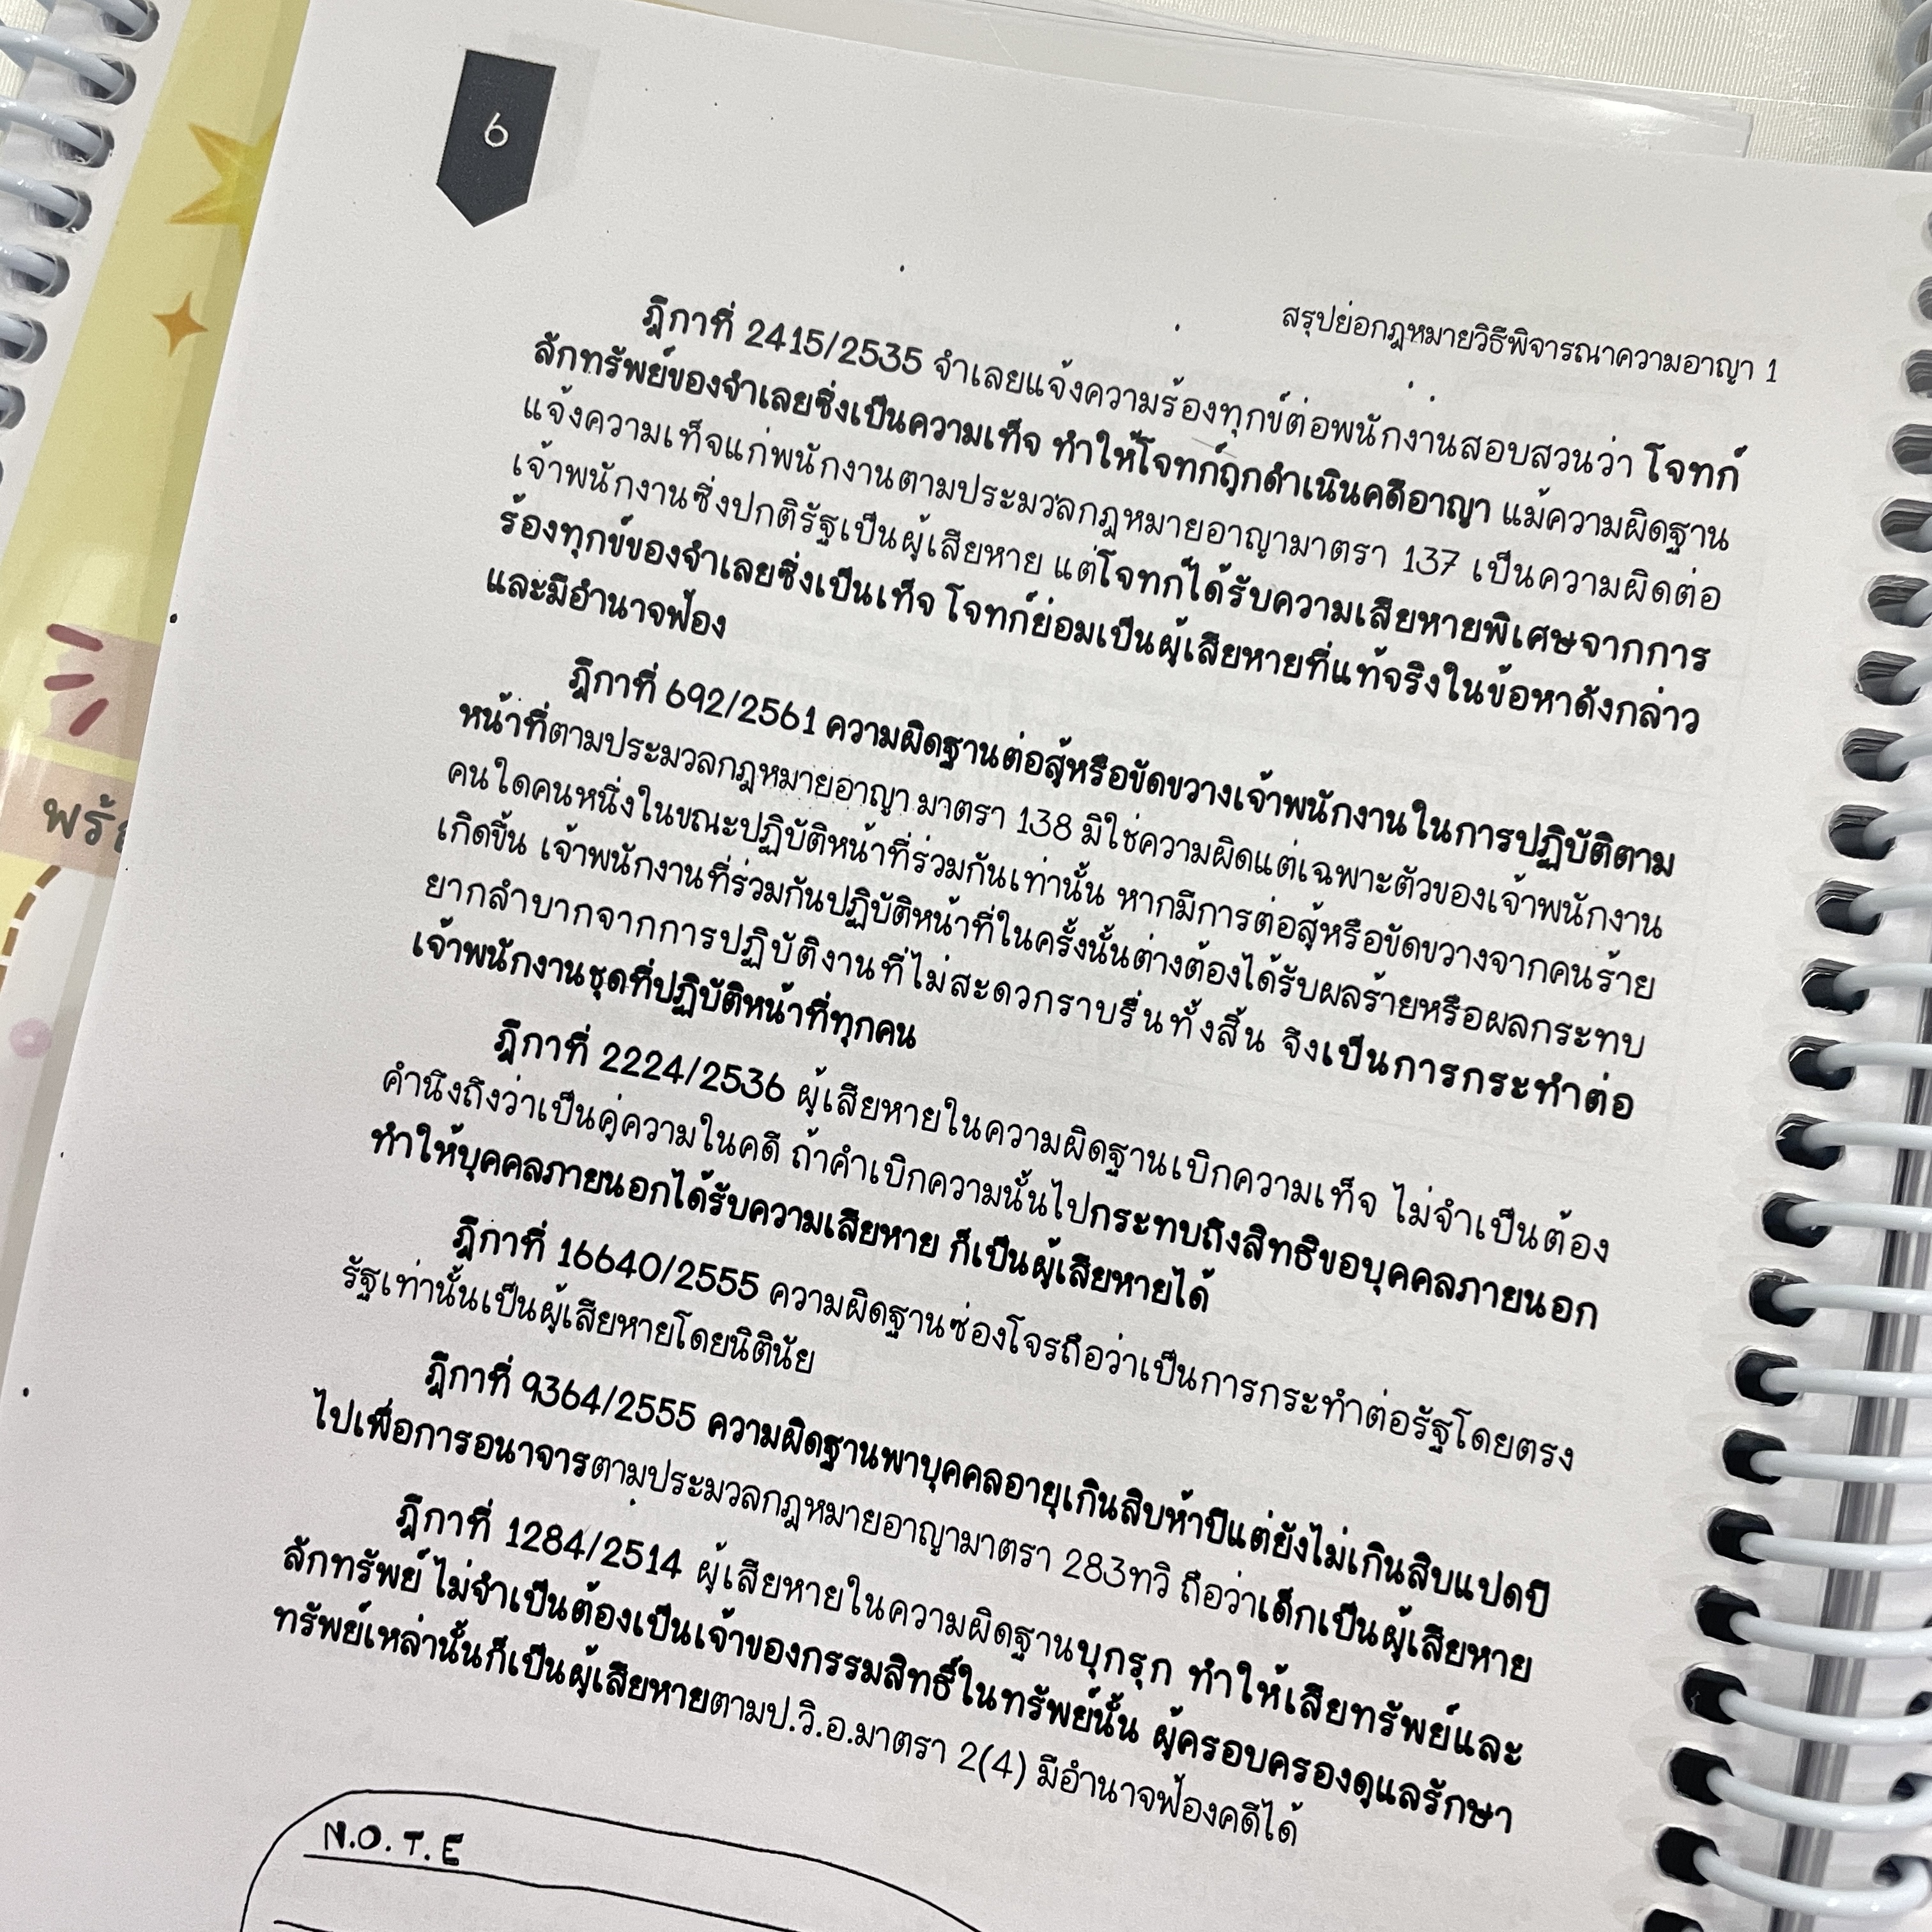 6
สรุปย่อกฎหมายวิธีพิจารณาความอาญา 1
ฎีกาที่ 2415/2535 จำเลยแจ้งความร้องทุกข์ต่อพนักงานสอบสวนว่า โจทก์
ลักทรัพย์ของจำเลยซึ่งเป็นความเท็จ ทำให้โจทก์ถูกดำเนินคดีอาญา แม้ความผิดฐาน
แจ้งความเท็จแก่พนักงานตามประมวลกฎหมายอาญามาตรา 137 เป็นความผิดต่อ
เจ้าพนักงานซึ่งปกติรัฐเป็นผู้เสียหาย แต่โจทก์ได้รับความเสียหายพิเศษจากการ
ร้องทุกข์ของจำเลยซึ่งเป็นเท็จ โจทก์ย่อมเป็นผู้เสียหายที่แท้จริงในข้อหาดังกล่าว
และมีอำนาจฟ้อง
ฎีกาที่ 692/2561 ความผิดฐานต่อสู้หรือขัดขวางเจ้าพนักงานในการปฏิบัติตาม
หน้าที่ตามประมวลกฎหมายอาญา มาตรา 138 มิใช่ความผิดแต่เฉพาะตัวของเจ้าพนักงาน
คนใดคนหนึ่งในขณะปฏิบัติหน้าที่ร่วมกันเท่านั้น หากมีการต่อสู้หรือขัดขวางจากคนร้าย
เกิดขึ้น เจ้าพนักงานที่ร่วมกันปฏิบัติหน้าที่ในครั้งนั้นต่างต้องได้รับผลร้ายหรือผลกระทบ
ยากลำบากจากการปฏิบัติงานที่ไม่สะดวกราบรื่นทั้งสิ้น จึงเป็นการกระทำต่อ
เจ้าพนักงานชุดที่ปฏิบัติหน้าที่ทุกคน
ฎีกาที่ 2224/2536 ผู้เสียหายในความผิดฐานเบิกความเท็จ ไม่จำเป็นต้อง
คำนึงถึงว่าเป็นคู่ความในคดี ถ้าคำเบิกความนั้นไปกระทบถึงสิทธิขอบุคคลภายนอก
ทำให้บุคคลภายนอกได้รับความเสียหาย ก็เป็นผู้เสียหายได้
ฎีกาที่ 16640/2555 ความผิดฐานซ่องโจรถือว่าเป็นการกระทำต่อรัฐโดยตรง
รัฐเท่านั้นเป็นผู้เสียหายโดยนิตินัย
ฎีกาที่ 9364/2555 ความผิดฐานพาบุคคลอายุเกินสิบห้าปีแต่ยังไม่เกินสิบแปดปี
ไปเพื่อการอนาจารตามประมวลกฎหมายอาญามาตรา 283ทวิ ถือว่าเด็กเป็นผู้เสียหาย
ฎีกาที่ 1284/2514 ผู้เสียหายในความผิดฐานบุกรุก ทำให้เสียทรัพย์และ
ลักทรัพย์ ไม่จำเป็นต้องเป็นเจ้าของกรรมสิทธิ์ในทรัพย์นั้น ผู้ครอบครองดูแลรักษา
ทรัพย์เหล่านั้นก็เป็นผู้เสียหายตามป.วิ.อ.มาตรา 2(4) มีอำนาจฟ้องคดีได้
N.O.T.E